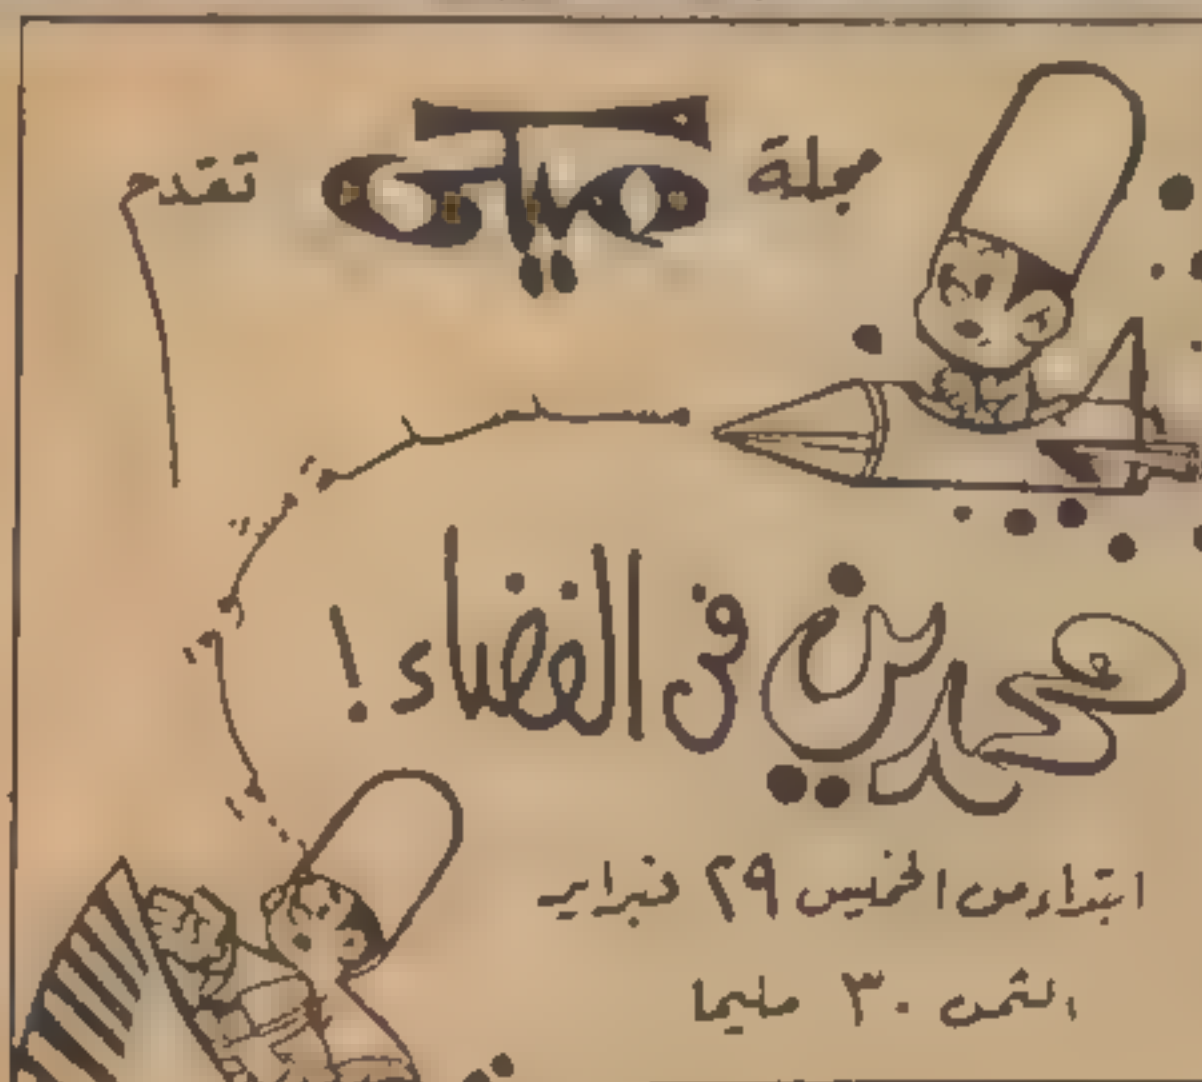 مجلة ميكى تقدم
محمدين فى الفضاء !
ابتداء من الخميس ٢٩ فبراير
الثمن ٣٠ مليما